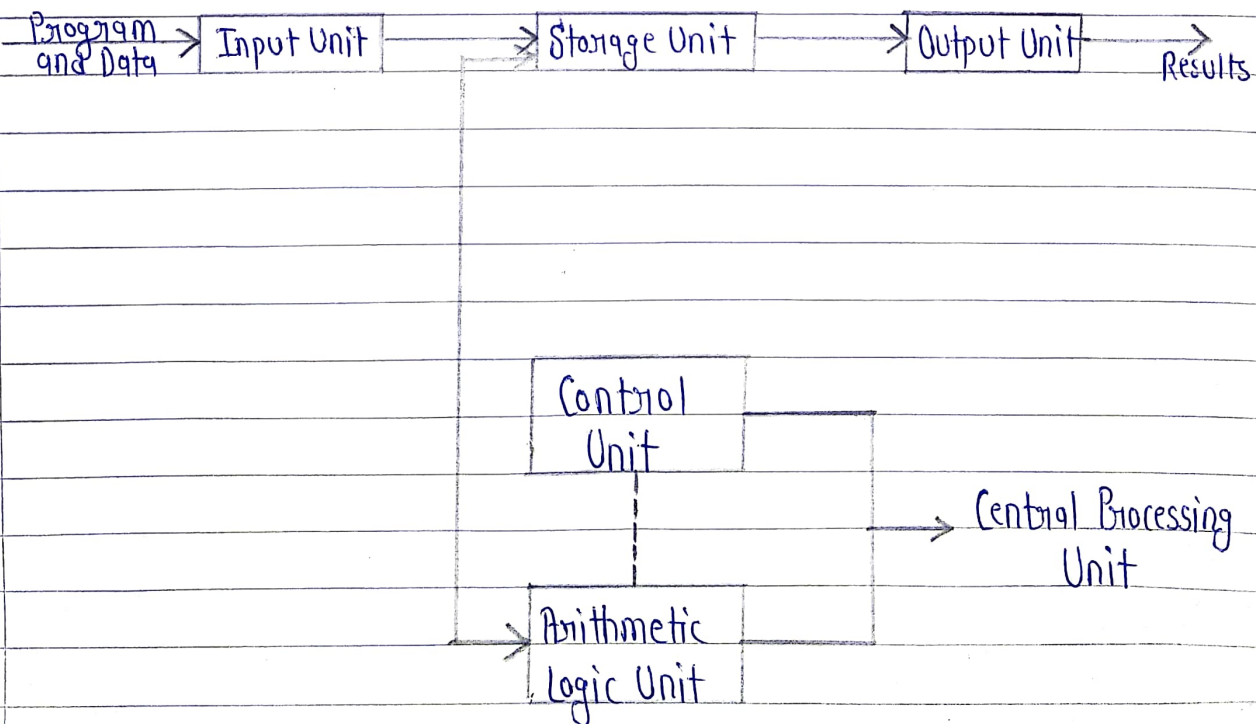 Program
and Data
Input Unit
Storage Unit
Output Unit
Results
Control
Unit
Central Processing
Unit
Arithmetic
Logic Unit